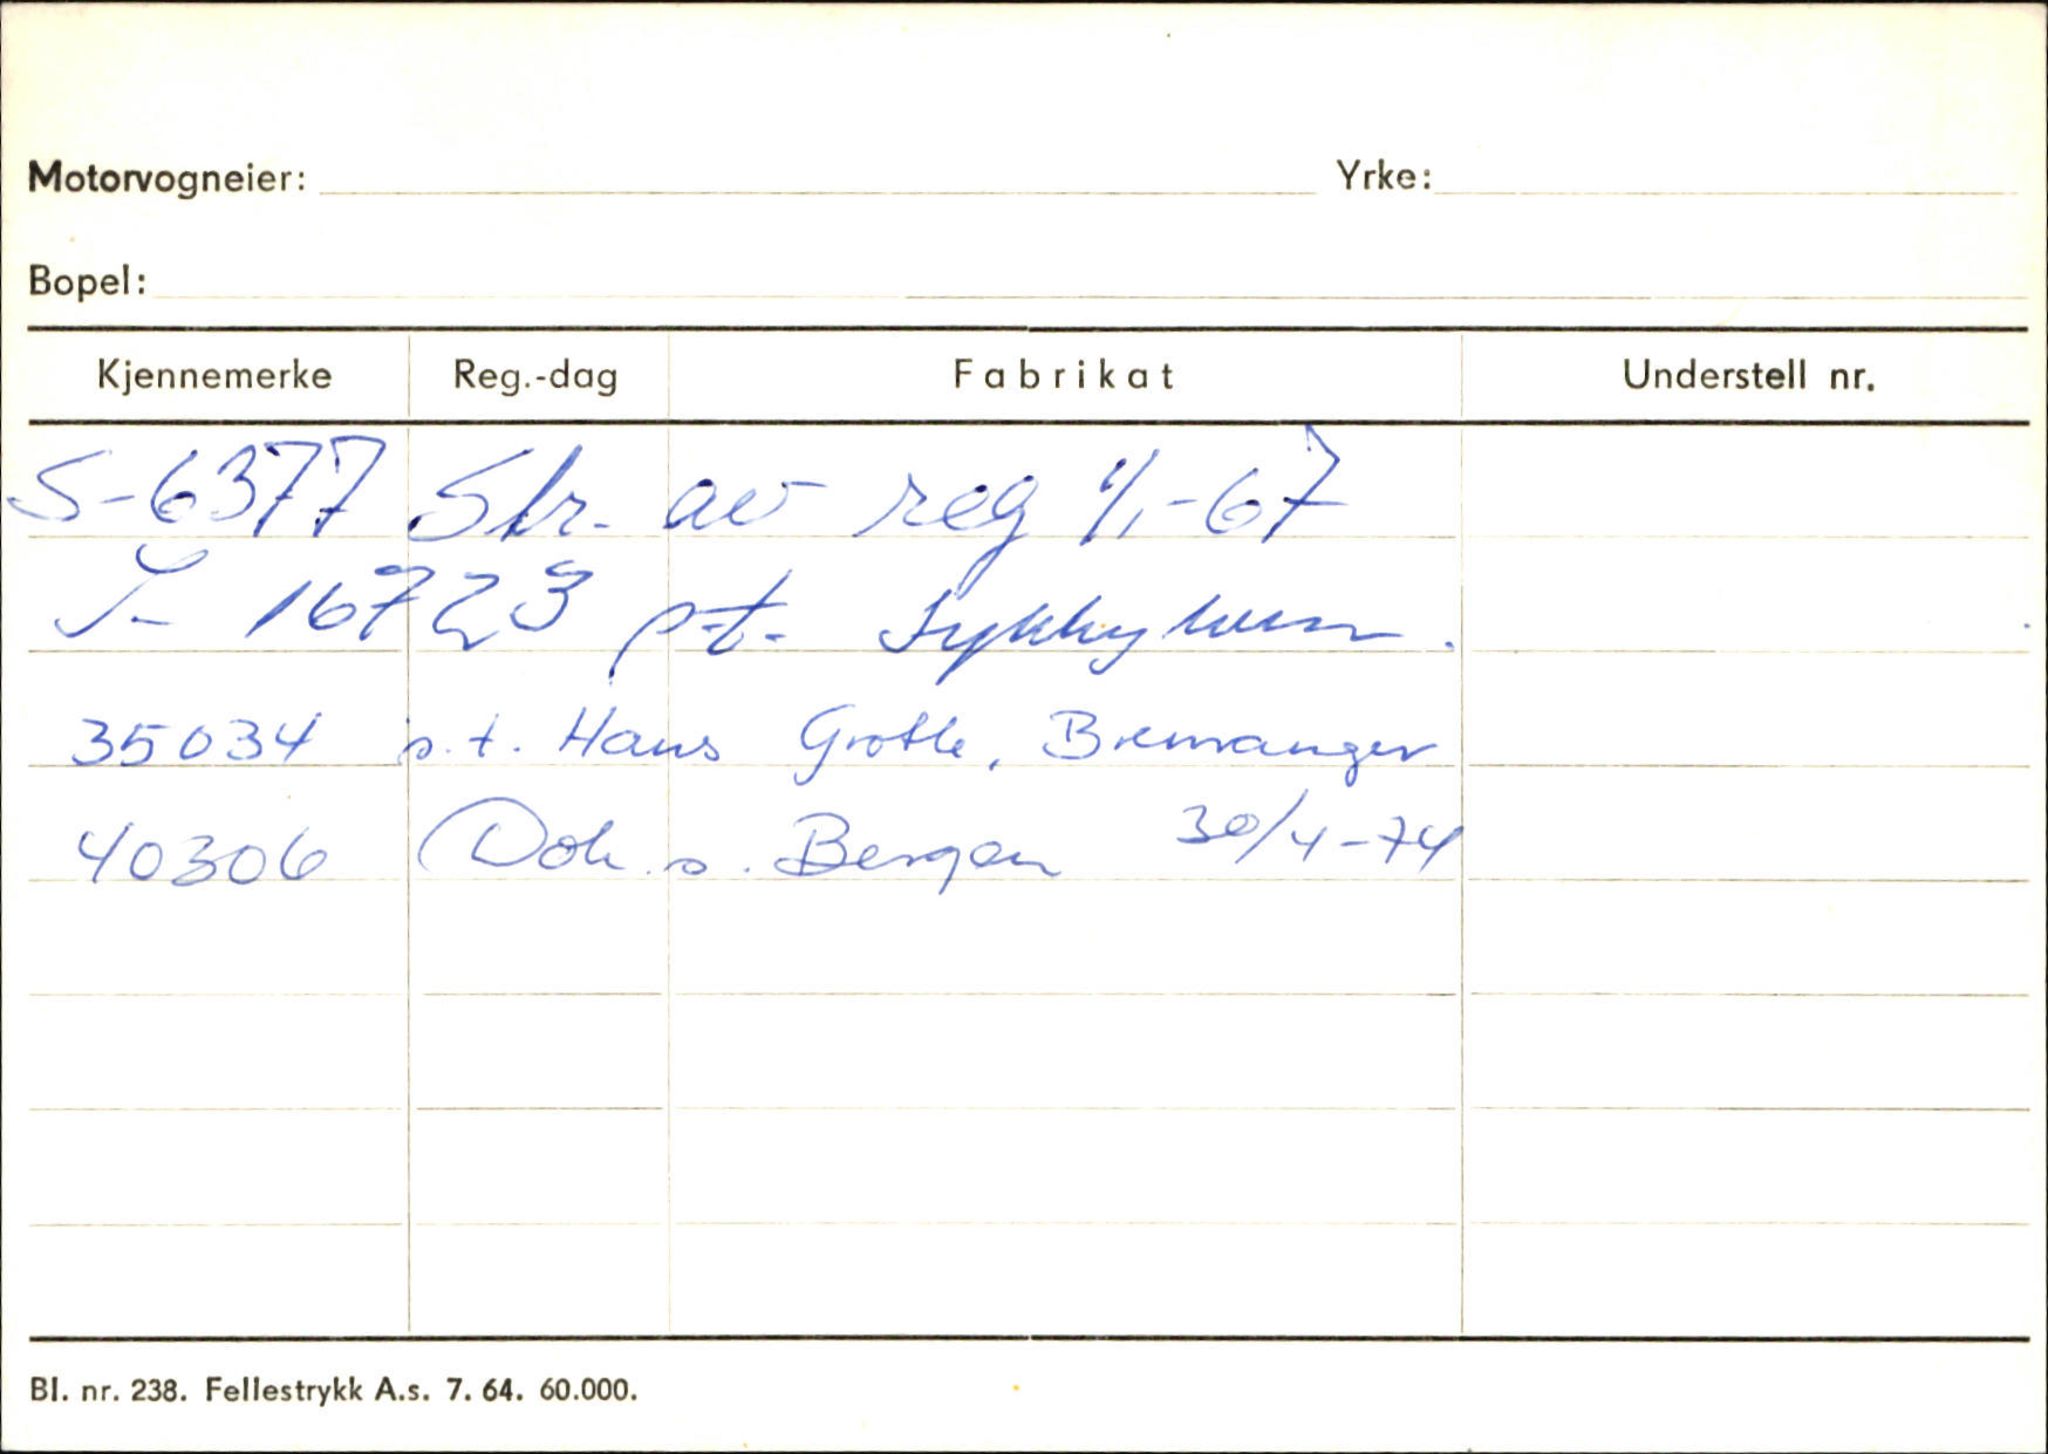 Motorvogneier: Yrke:
Bopel:
Kjennemerke Reg.-dag Fabrikat Understell nr.
S-6377 Str. av reg 1/1-67
S- 16723 p.t.
35034 s.t. Hans Grotle, Bremanger
40306 Dok. s. Bergen 30/4-74
Bl. nr. 238. Fellestrykk A.s. 7. 64. 60.000.